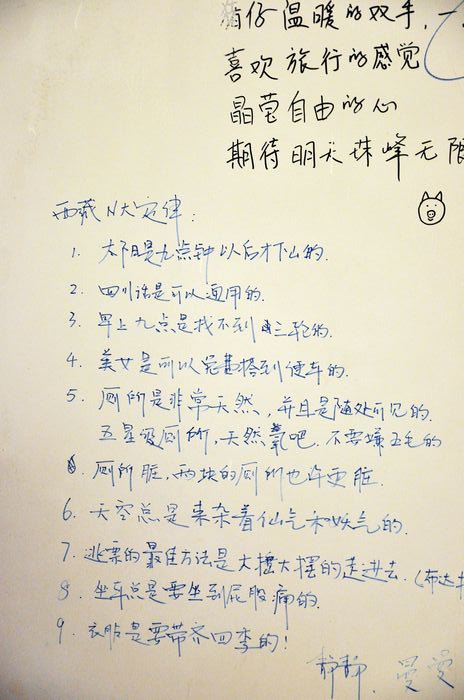 猫仔温暖的双手，一
喜欢旅行的感觉
晶莹自由的心
期待明天珠峰无限
西藏N大定律：
1. 太阳是九点钟以后才下山的.
2. 四川话是可以通用的.
3. 早上九点是找不到三轮的.
4. 美女是可以完搭到便车的.
5. 厕所是非常天然，并且是随处可见的.
五星级厕所，天然氧吧. 不要嫌五毛的
厕所脏，两块的厕所也许更脏.
6. 天空总是来杂着仙气和妖气的.
7. 逃票的最佳方法是大摇大摆的走进去.（布达拉
8. 坐车总是要坐到屁股痛的.
9. 衣服是要带齐四季的！
静静 曼雯